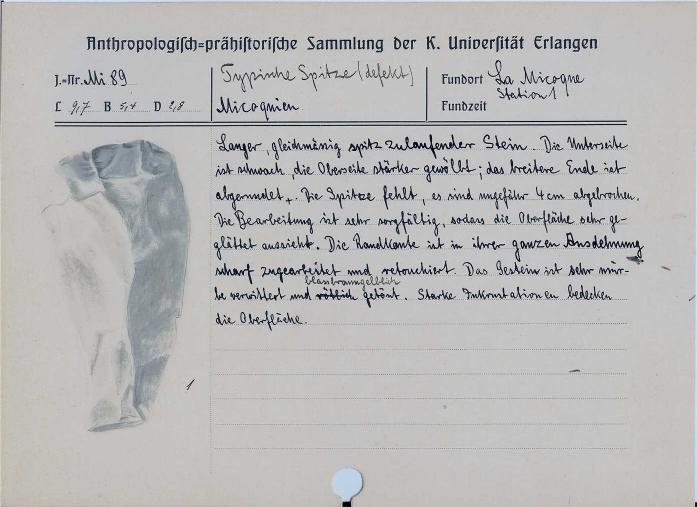 Anthropologisch=prähistorische Sammlung der K. Universität Erlangen
J.=Nr. Mi 89
Typische Spitze (defekt)
Fundort La Micoque
Station 1
L 9,7 B 5,4 D 2,8
Micoquien
Fundzeit
Langer, gleichmässig spitz zulaufender Stein. Die Unterseite
ist schwach, die Oberseite stärker gewölbt; das breitere Ende ist
abgerundet. Die Spitze fehlt, es sind ungefähr 4 cm abgebrochen.
Die Bearbeitung ist sehr sorgfältig, sodass die Oberfläche sehr ge-
glättet aussieht. Die Randkante ist in ihrer ganzen Ausdehnung
scharf zugearbeitet und retouchiert. Das Gestein ist sehr mür-
blassbraungelblich
be verwittert und rötlich getönt. Starke Inkrustationen bedecken
die Oberfläche.
1